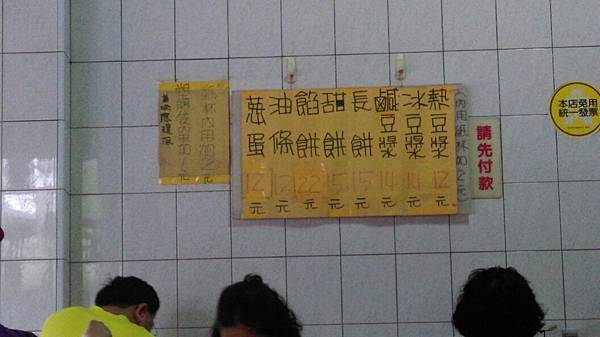 熱豆漿 12元
冰豆漿 14元
鹹豆漿 14元
長餅 15元
甜餅 15元
餡餅 22元
油條 12元
蔥蛋 12元
(內用紙杯加2元)
請先付款
本店免用
統一發票
紙杯內用加2元